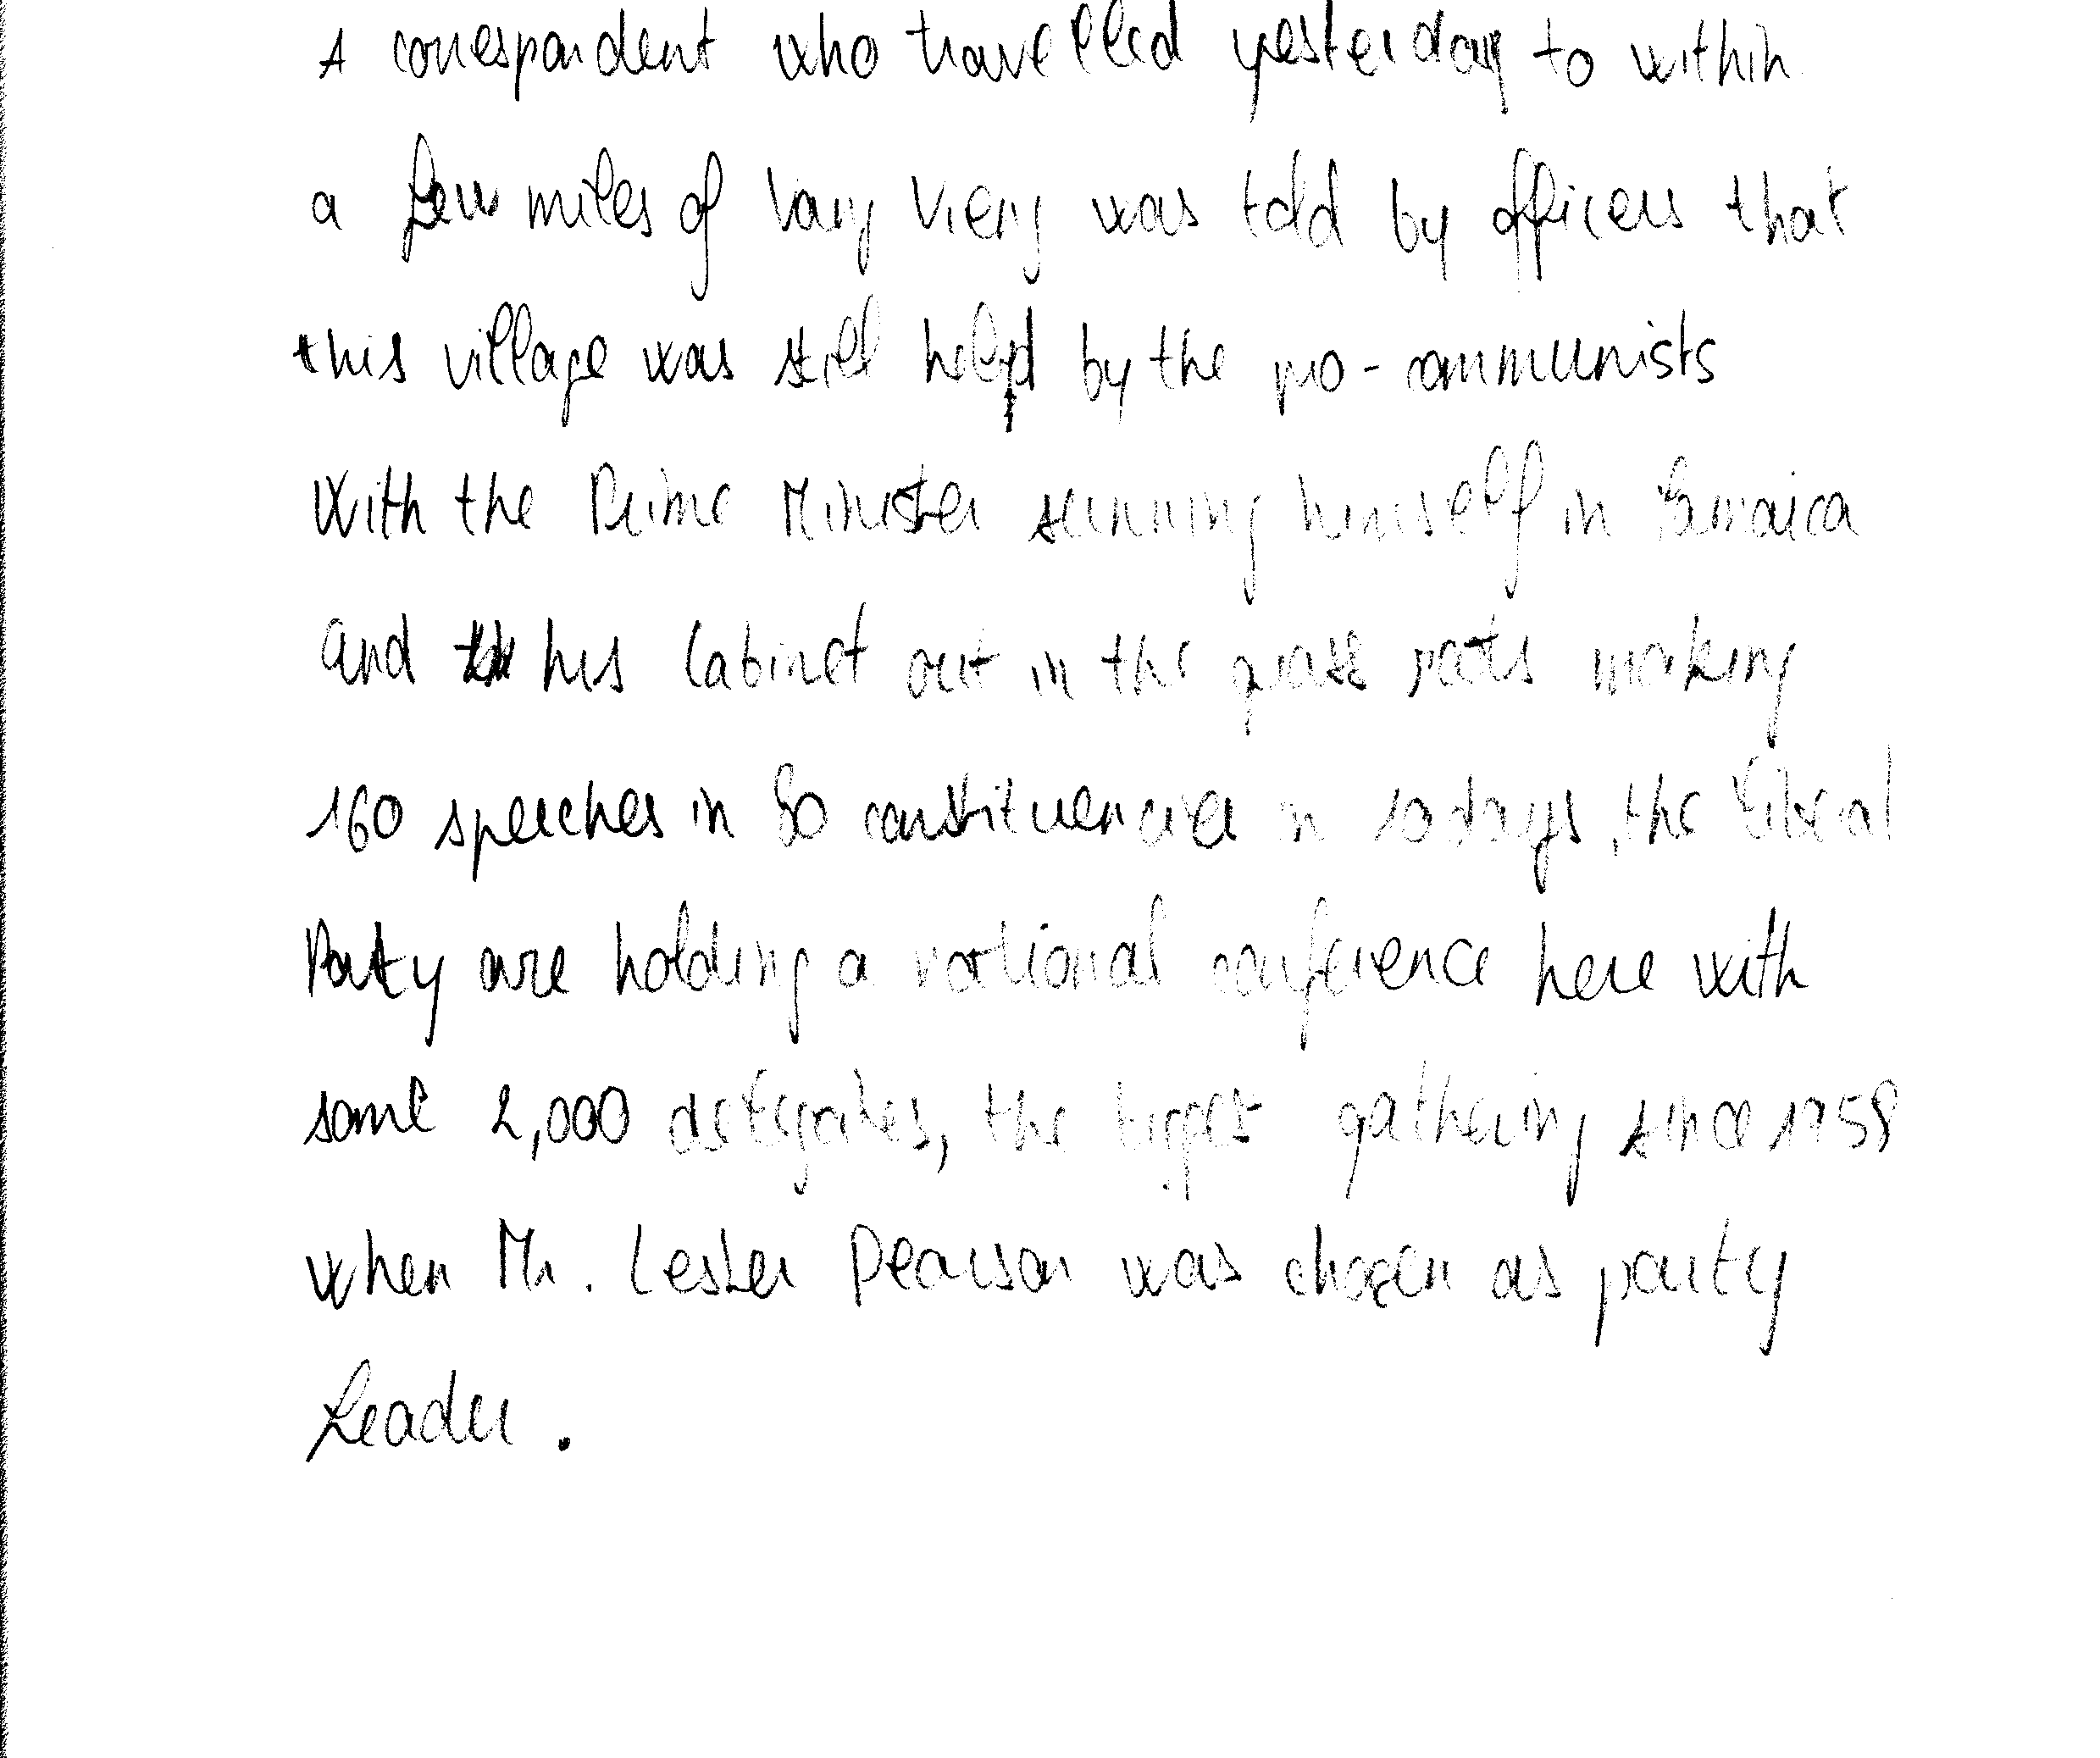 A correspondent who travelled yesterday to within
a few miles of Vang Vieng was told by officers that
this village was still held by the pro-communists
With the Prime Minister sunning himself in Jamaica
and his Cabinet out in the grass roots making
160 speeches in 80 constituencies in 10 days, the Liberal
Party are holding a national conference here with
some 2,000 delegates, the biggest gathering since 1958
when Mr. Lester Pearson was chosen as party
Leader.